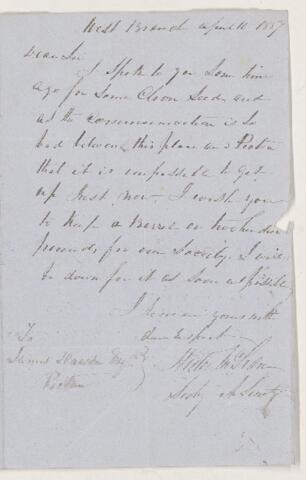 West Branch April 10 1857
Dear Sir
I Spoke to you Some time
ago for Some Clover Seeds and
as the communication is So
bad between this place and Pictou
that it is impossible to get
up Just now. I wish you
to keep a Barrel or two hundred
pounds for our Society. I will
be down for it as Soon as possible
I remain yours with
due respect
To
James Dawson Esqr
Pictou
Secty